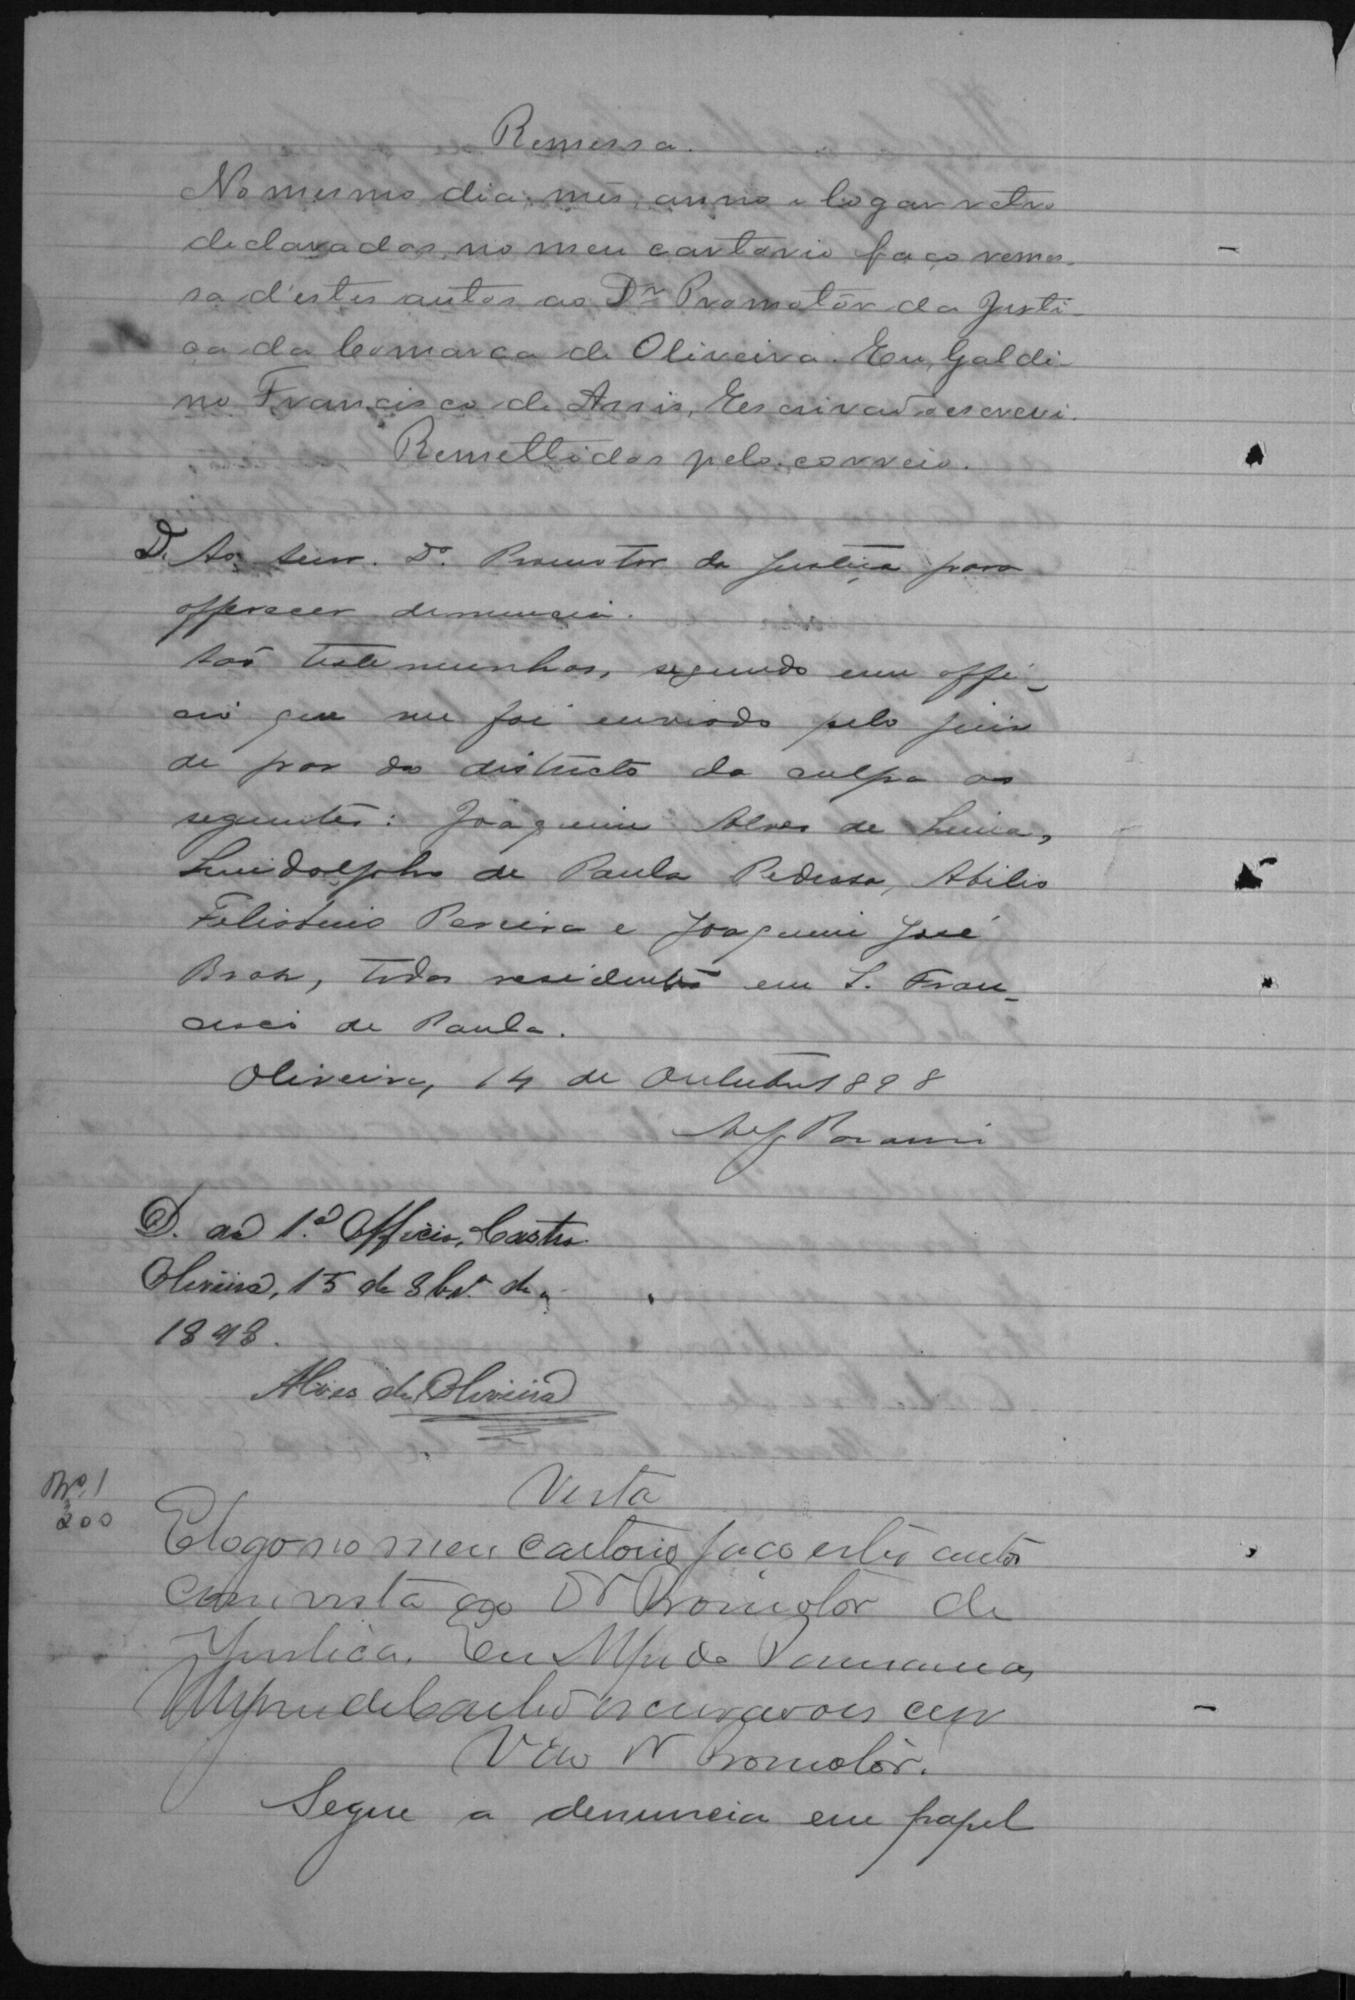 Remessa.
No mesmo dia, mes, anno e logar retro
declarados, no meu cartorio faço remes-
sa d'estes autos ao Dr. Promotôr da Justi-
ça da Comarca de Oliveira. Eu, Galdi-
no Francisco de Assis, Escrivão escrevi.
Remettidos pelo correio.
D. Ao Dr. Promotor da Justiça para
offerecer denuncia.
São testemunhas, segundo um offi-
cio que me foi enviado pelo juiz
de paz do districto da culpa os
seguintes: Joaquim Alves de Lima,
Lindolpho de Paula Pedrosa, Abilio
Felisbino Pereira e Joaquim José
Braz, todos residentes em S. Fran-
cisco de Paula.
Oliveira, 14 de Outubro 1898
D. ao 1.º Officio, Castro
Oliveira, 15 de 8br.º de
1898.
Alves de Oliveira
Vista
200
E logo no meu cartorio faço estes autos
com vista ao Dr Promotôr de
Justiça. Eu
de Castro escrivão escr
V ao Dr Promotôr.
Segue a denuncia em papel